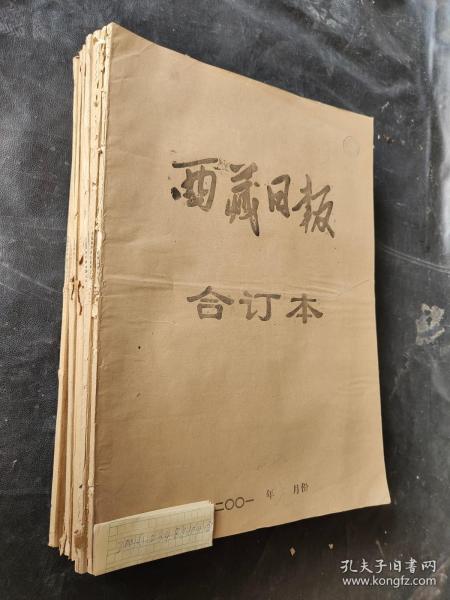 西藏日报
合订本
二〇〇一 年 月份
孔夫子旧书网
www.kongfz.com